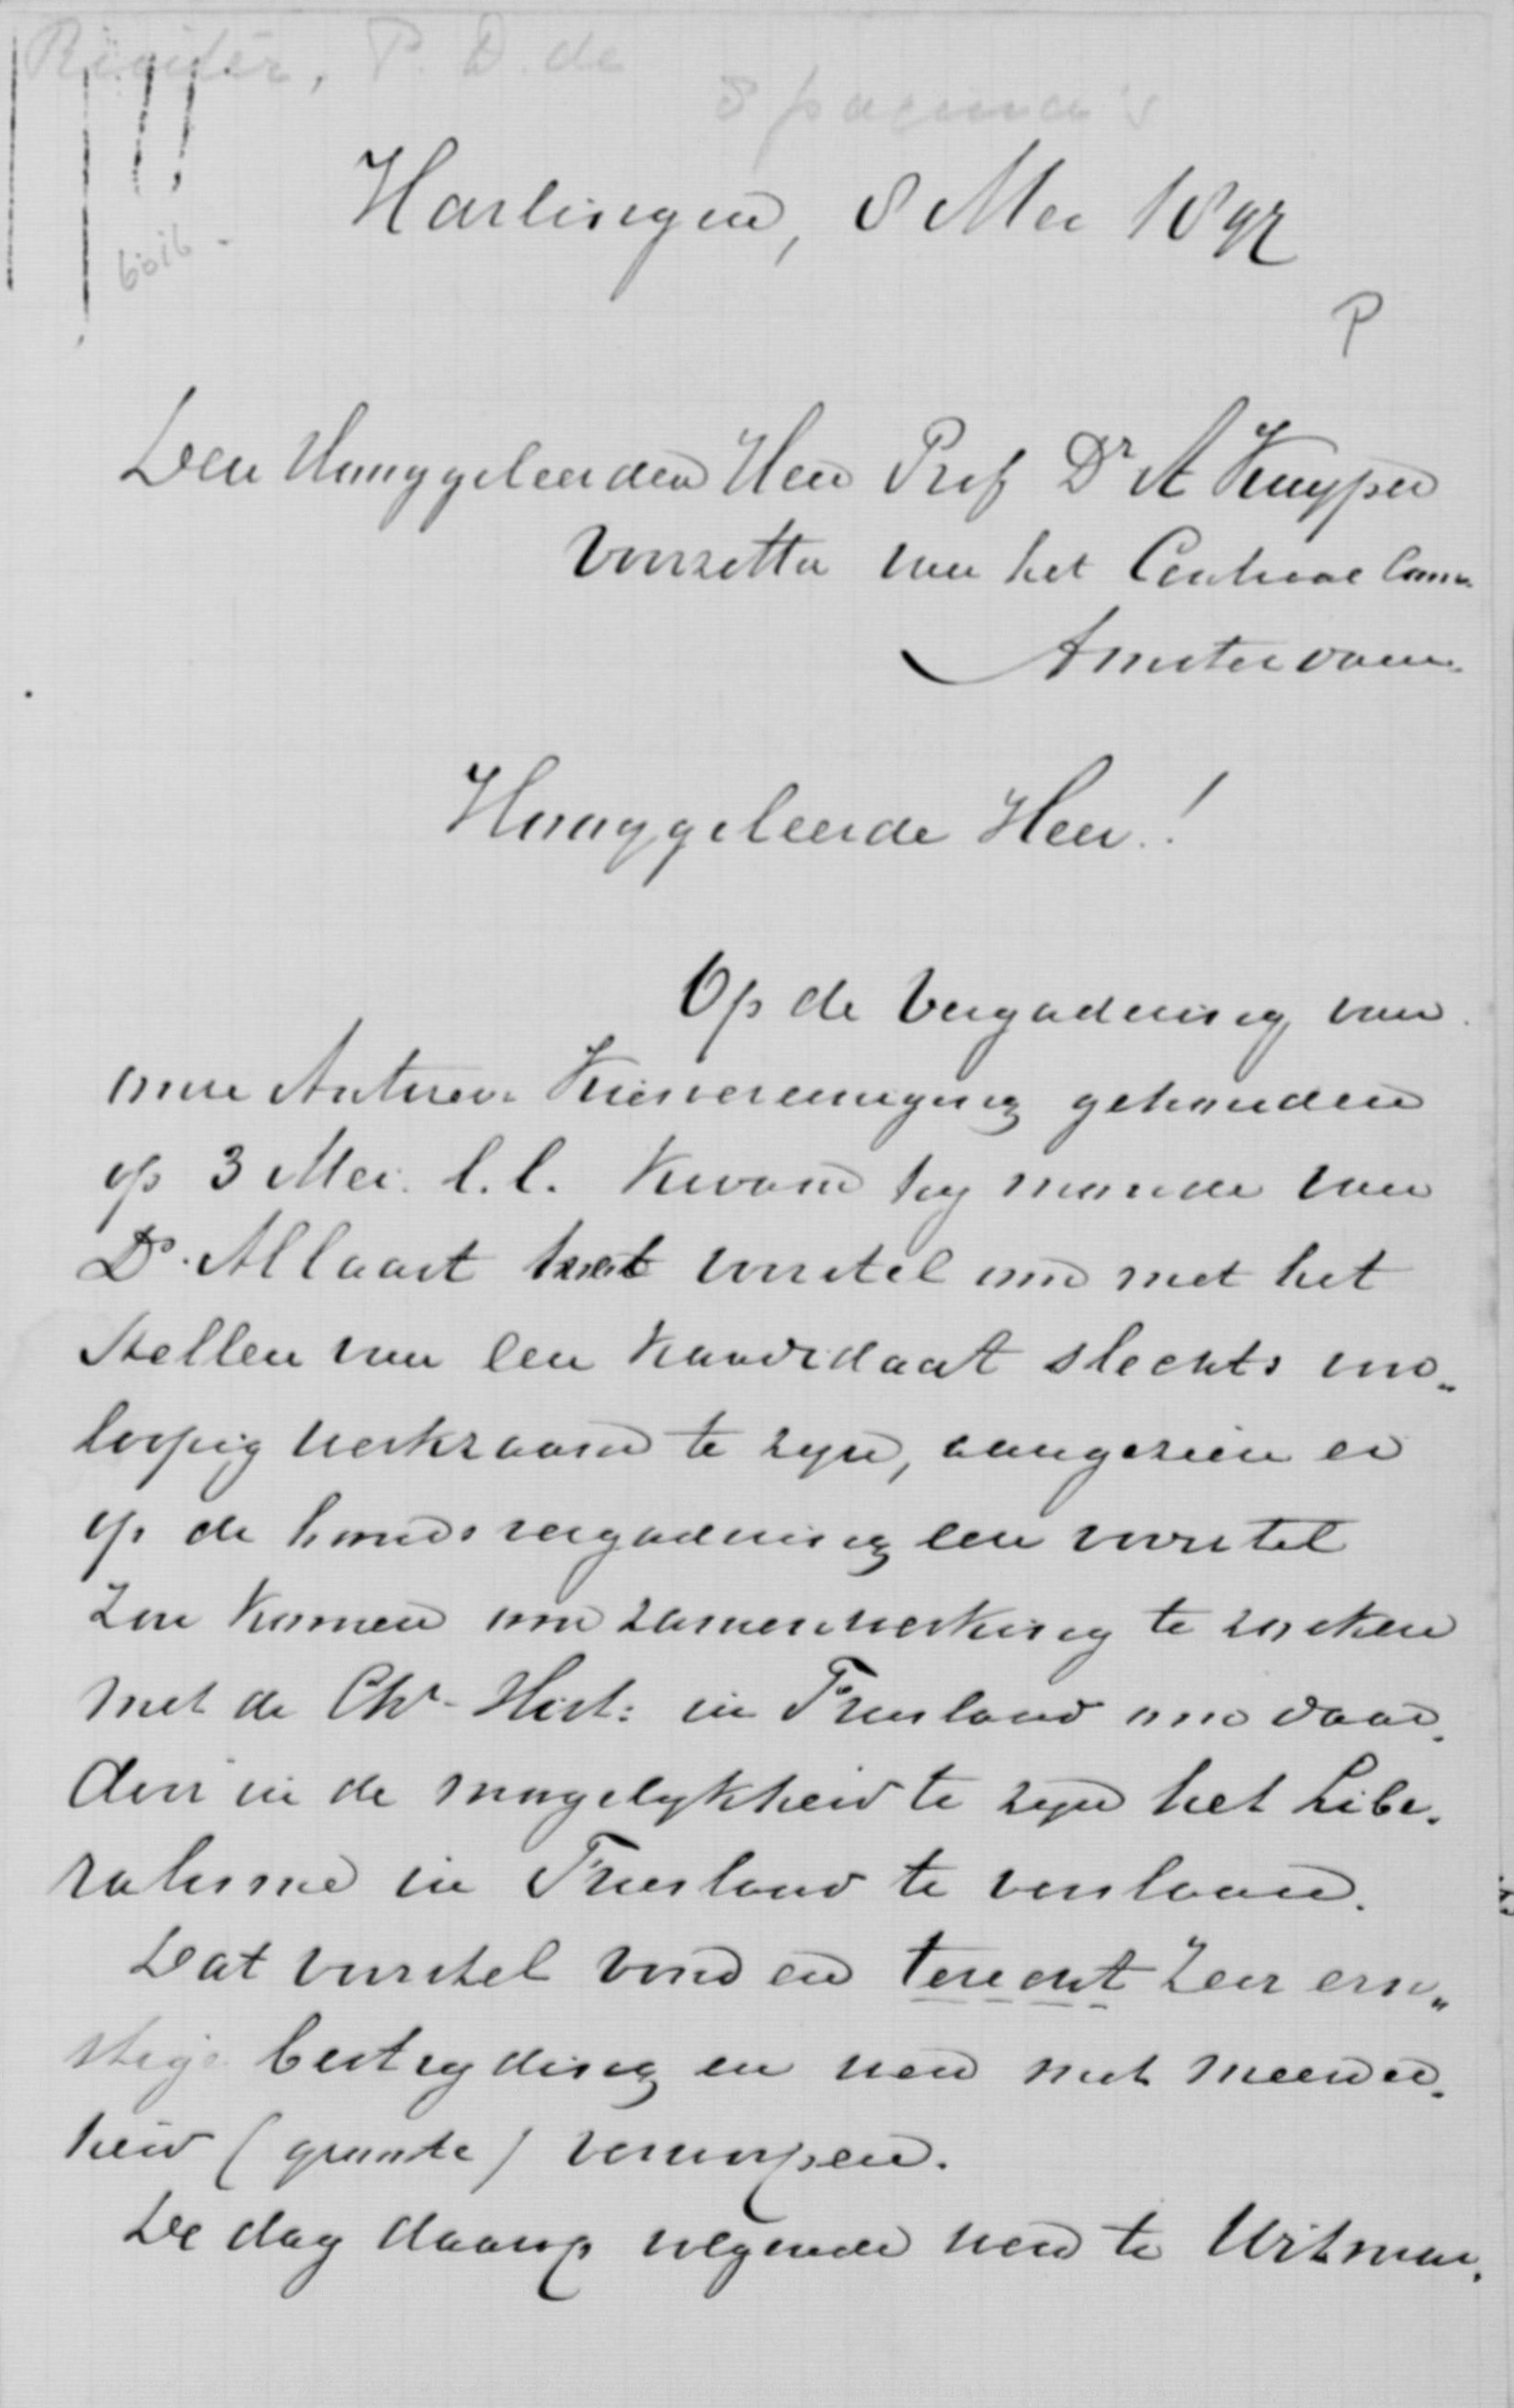 Ruiter, P. D. de
8 pagina's
Harlingen, 8 Mei 1897
6016.
P
Den Hooggeleerden Heer Prof Dr A Kuyper
Voorzitter van het Centraal Com.
Amsterdam.
Hooggeleerde Heer!
Op de Vergadering van
onze Antirev. Kiesvereeniging gehouden
op 3 Mei. l.l. kwam bij monde van
Ds. Allaart het voorstel om met het
stellen van een kandidaat slechts voor„
loopig werkzaam te zijn, aangezien er
op de bondsvergadering een voorstel
zou komen om zamenwerking te zoeken
met de Chr. Hist: in Friesland om daar„
door in de mogelijkheid te zijn het Libe„
ralisme in Friesland te verslaan.
Dat voorstel vond en terecht zeer ern„
stige bestrijding en werd met meerder„
heid (groote) verworpen.
De dag daarop volgende werd te Witmar„